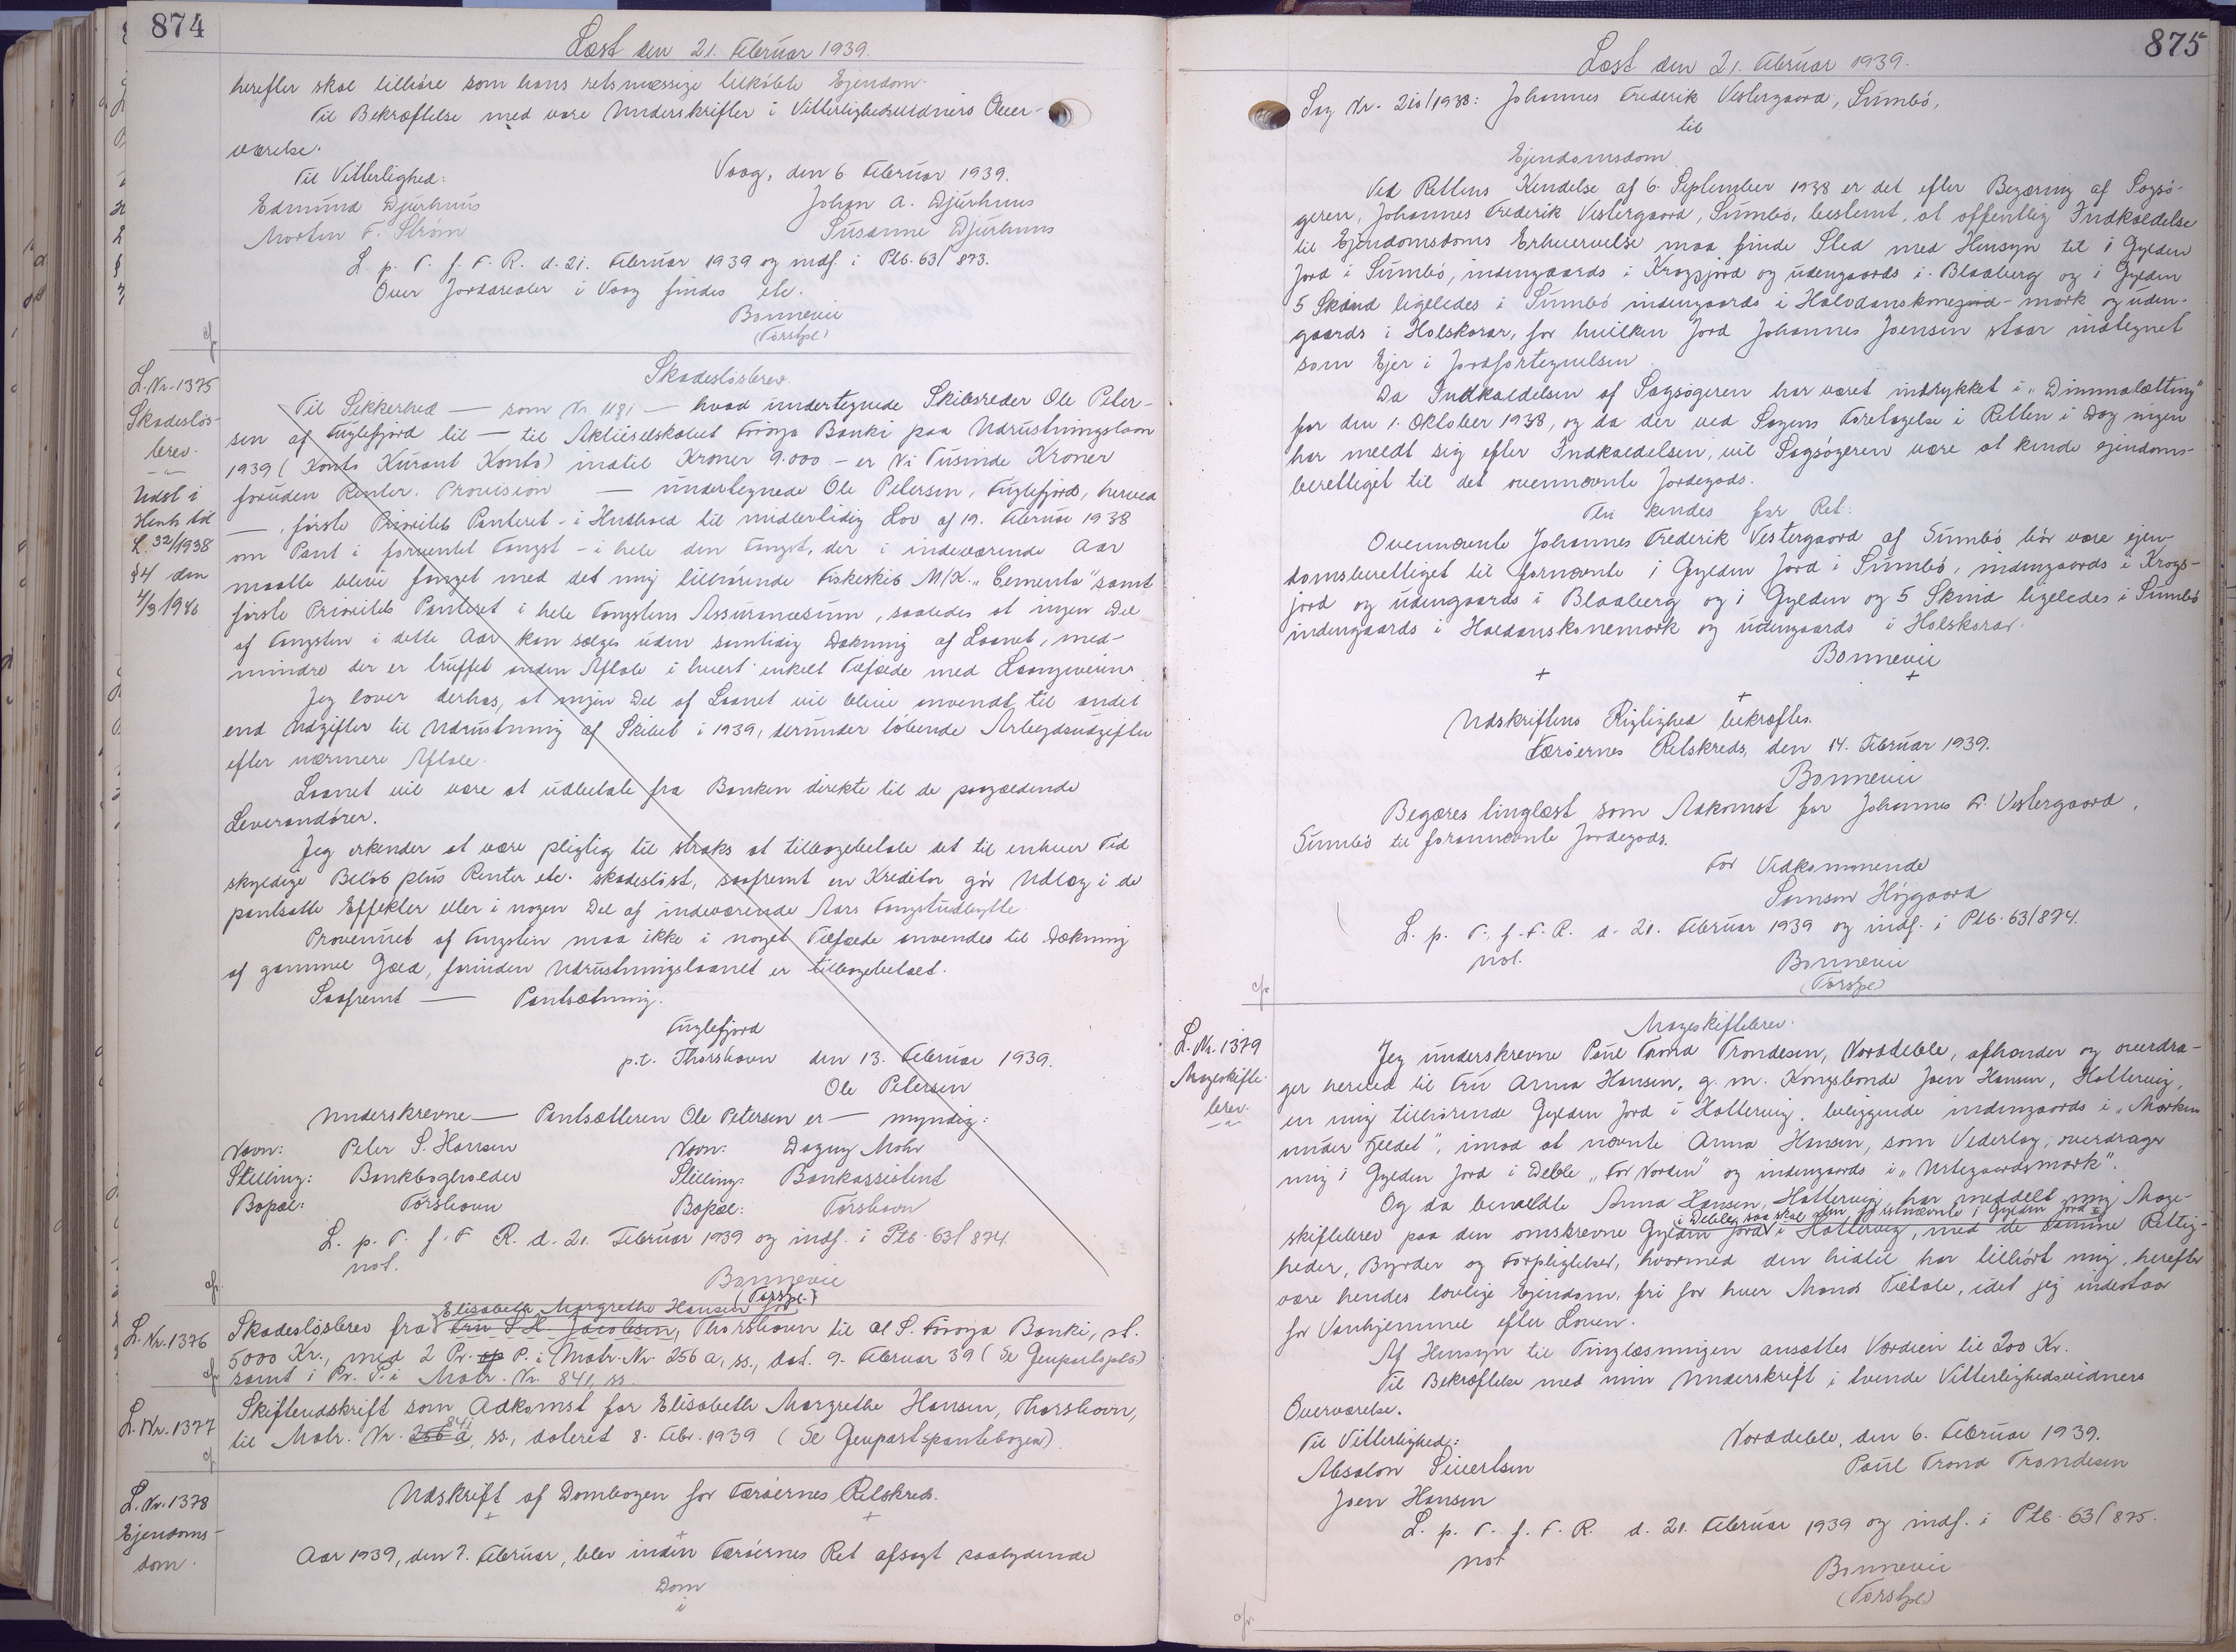 874
Læst den 21. Februar 1939.
herefter skal tilhøre som hans retsmæssige tilkøbte Ejendom.
Til Bekræftelse med vore Underskrifter i Vitterlighedsvidners Over-
værelse.
Til Vitterlighed:
Vaag, den 6 Februar 1939.
Edmund Djurhuus
Johan A. Djurhuus
Morten F. Strøm
Susanne Djurhuus
L. p. T. f. F. R. d. 21. Februar 1939 og indf. i Ptb. 63/873.
Over Jordarealer i Vaag findes etc.
Bonnevie
(Torshpl)
L. Nr. 1375
Skadesløs-
brev.
Udsl i
Henh til
L. 32/1938
§4 den
4/3 1946
Skadesløsbrev.
Til Sikkerhed — som Nr. 1181 — hvad undertegnede Skibsreder Ole Peter-
sen af Fuglefjord til — til Aktieselskabet Føroya Banki paa Udrustningslaan
1939 (Konto Kurant Konto) indtil Kroner 9.000 – er Ni Tusinde Kroner
foruden Renter. Provision — undertegnede Ole Petersen, Fuglefjord, herved
—, første Prioritets Panteret - i Henhold til midlertidig Lov af 19. Februar 1938
om Pant i forventet Fangst - i hele den Fangst, der i indeværende Aar
maatte blive fanget med det mig tilhørende Fiskeskib M/K. "Cementa" samt
første Prioritets Panteret i hele Fangstens Assurancesum, saaledes at ingen Del
af Fangsten i dette Aar kan sælges uden samtidig Dækning af Laanet, med-
mindre der er truffet anden Aftale i hvert enkelt Tilfælde med Laangiveren.
Jeg lover derhos, at ingen Del af Laanet vil blive anvendt til andet
end Udgifter til Udrustning af Skibet i 1939, derunder løbende Arbejdsudgifter
efter nærmere Aftale.
Laanet vil være at udbetale fra Banken direkte til de paagældende
Leverandører.
Jeg erkender at være pligtig til straks at tilbagebetale det til enhver Tid
skyldige Beløb plus Renter etc. skadesløst, saafremt en Kreditor gør Udlæg i de
pantsatte Effekter eller i nogen Del af indeværende Aars Fangstudbytte.
Provenuet af Fangsten maa ikke i noget Tilfælde anvendes til Dækning
af gammel Gæld, forinden Udrustningslaanet er tilbagebetalt.
Saafremt — Pantsætning.
Fuglefjord
p.t. Thorshavn den 13. Februar 1939.
Ole Petersen
Underskrevne — Pantsætteren Ole Petersen er — myndig:
Navn: Peter S. Hansen Navn: Dagny Mohr
Stilling: Bankbogholder Stilling: Bankassistent
Bopæl: Torshavn Bopæl: Torshavn
L. p. T. f. F R. d. 21. Februar 1939 og indf. i Ptb. 63/874.
not.
Bonnevie
(Torshpl.)
Elisabeth Margrethe Hansen før
L. Nr. 1376
Skadesløsbrev fra Fru S H. Jacobsen, Thorshavn til A/S. Føroya Banki, st.
5000 Kr., med 2 Pr. op P. i Matr. Nr. 256 a, ss., dat. 9. Februar 39 (Se Genpartsptb)
samt i Pr. P. i Matr. Nr. 841, ss
L. Nr. 1377
Skifteudskrift som Adkomst for Elisabeth Margrethe Hansen, Thorshavn,
841
til Matr. Nr. 256 a, ss., dateret 8. Febr. 1939 (Se Genpartspantebogen)
L. Nr. 1378
Ejendoms-
dom.
Udskrift af Dombogen for Færøernes Retskreds.
Aar 1939, den 7. Februar, blev inden Færøernes Ret afsagt saalydende
Dom
i
875
Læst den 21. Februar 1939.
Sag Nr. 210/1938: Johannes Frederik Vestergaard, Sumbø,
til
Ejendomsdom
Ved Rettens Kendelse af 6. September 1938 er det efter Begæring af Sagsø-
geren, Johannes Frederik Vestergaard, Sumbø, bestemt, at offentlig Indkaldelse
til Ejendomsdoms Erhvervelse maa finde Sted med Hensyn til 1 Gylden
Jord i Sumbø, indengaards i Krogsjord og udengaards i Blaaberg og 1 Gylden
5 Skind ligeledes i Sumbø indengaards i Halvdanskonejord-mørk og uden-
gaards i Holskorar, for hvilken Jord Johannes Joensen staar indtegnet
som Ejer i Jordfortegnelsen
Da Indkaldelsen af Sagsøgeren har været indrykket i "Dimmalætting"
for den 1. Oktober 1938, og da der ved Sagens Foretagelse i Retten i Dag ingen
har meldt sig efter Indkaldelsen, vil Sagsøgeren være at kende ejendoms-
berettiget til det ovennævnte Jordegods.
Thi kendes for Ret:
Ovennævnte Johannes Frederik Vestergaard af Sumbø bør være ejen-
domsberettiget til fornævnte 1 Gylden Jord i Sumbø, indengaards i Krogs-
jord og udengaards i Blaaberg og 1 Gylden og 5 Skind ligeledes i Sumbø
indengaards i Haldanskonemørk og udengaards i Holskorar.
Bonnevie
Udskriftens Rigtighed bekræftes.
Færøernes Retskreds, den 14. Februar 1939.
Bonnevie
Begæres tinglæst som Adkomst for Johannes Fr Vestergaard,
Sumbø til forannævnte Jordegods.
For Vedkommende
Samson Højgaard
L. p. T. f. F. R. d. 21. Februar 1939 og indf. i Ptb. 63/874.
not.
Bonnevie
(Torshpl)
L. Nr. 1379
Mageskifte-
brev.
Mageskiftebrev.
Jeg underskrevne Poul Trond Trondesen, Norddeble, afhænder og overdra-
ger herved til Fru Anna Hansen, g. m. Kongsbonde Joen Hansen, Hattervig,
en mig tilhørende Gylden Jord i Hattervig, beliggende indengaards i "Marken
under Fjeldet", imod at nævnte Anna Hansen, som Vederlag, overdrager
mig 1 Gylden Jord i Deble "For Norden" og indengaards i "Urtegaardsmørk".
Og da bemeldte Anna Hansen, Hattervig, har meddelt mig Mage-
i Deble, saa skal den førstnævnte 1 Gylden Jord
skiftebrev paa den omskrevne Gylden Jord i Hattervig, med de samme Rettig-
heder, Byrder og Forpligtelser, hvormed den hidtil har tilhørt mig, herefter
være hendes lovlige Ejendom, fri for hver Mands Tiltale, idet jeg indestaar
for Vanhjemmel efter Loven.
Af Hensyn til Tinglæsningen ansættes Værdien til 200 Kr.
Til Bekræftelse med min Underskrift i tvende Vitterlighedsvidners
Overværelse.
Til Vitterlighed:
Norddeble, den 6. Februar 1939.
Absalon Sivertsen
Poul Trond Trondesen
Joen Hansen
L. p. T. f. F. R. d. 21. Februar 1939 og indf. i Ptb. 63/875.
not
Bonnevie
(Torshpl.)